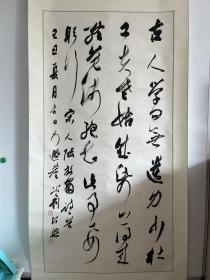 古人学问无遗力少壮
工夫老始成纸上得来
终觉浅绝知此事要
躬行 宋人陆放翁诗
己丑夏月